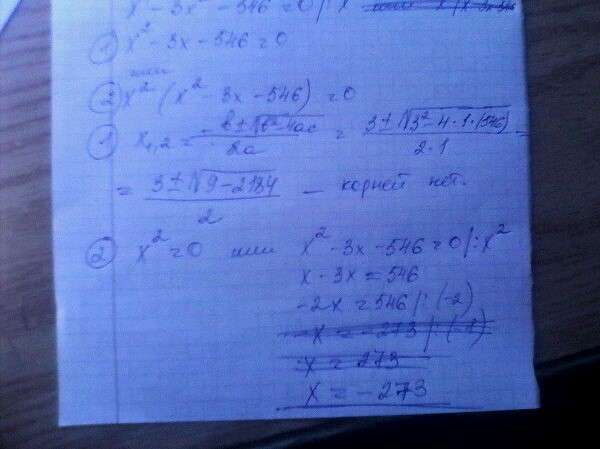 ① x² - 3x - 546 = 0
или
② x² (x² - 3x - 546) = 0
① x₁,₂ = -b±√b²-4ac / 2a = 3±√3²-4·1·(546) / 2·1 =
= 3±√9-2184 / 2 — корней нет.
② x² = 0 или x² - 3x - 546 = 0 |: x²
x - 3x = 546
-2x = 546 |: (-2)
-x = -273 |: (-1)
x = 273
x = -273